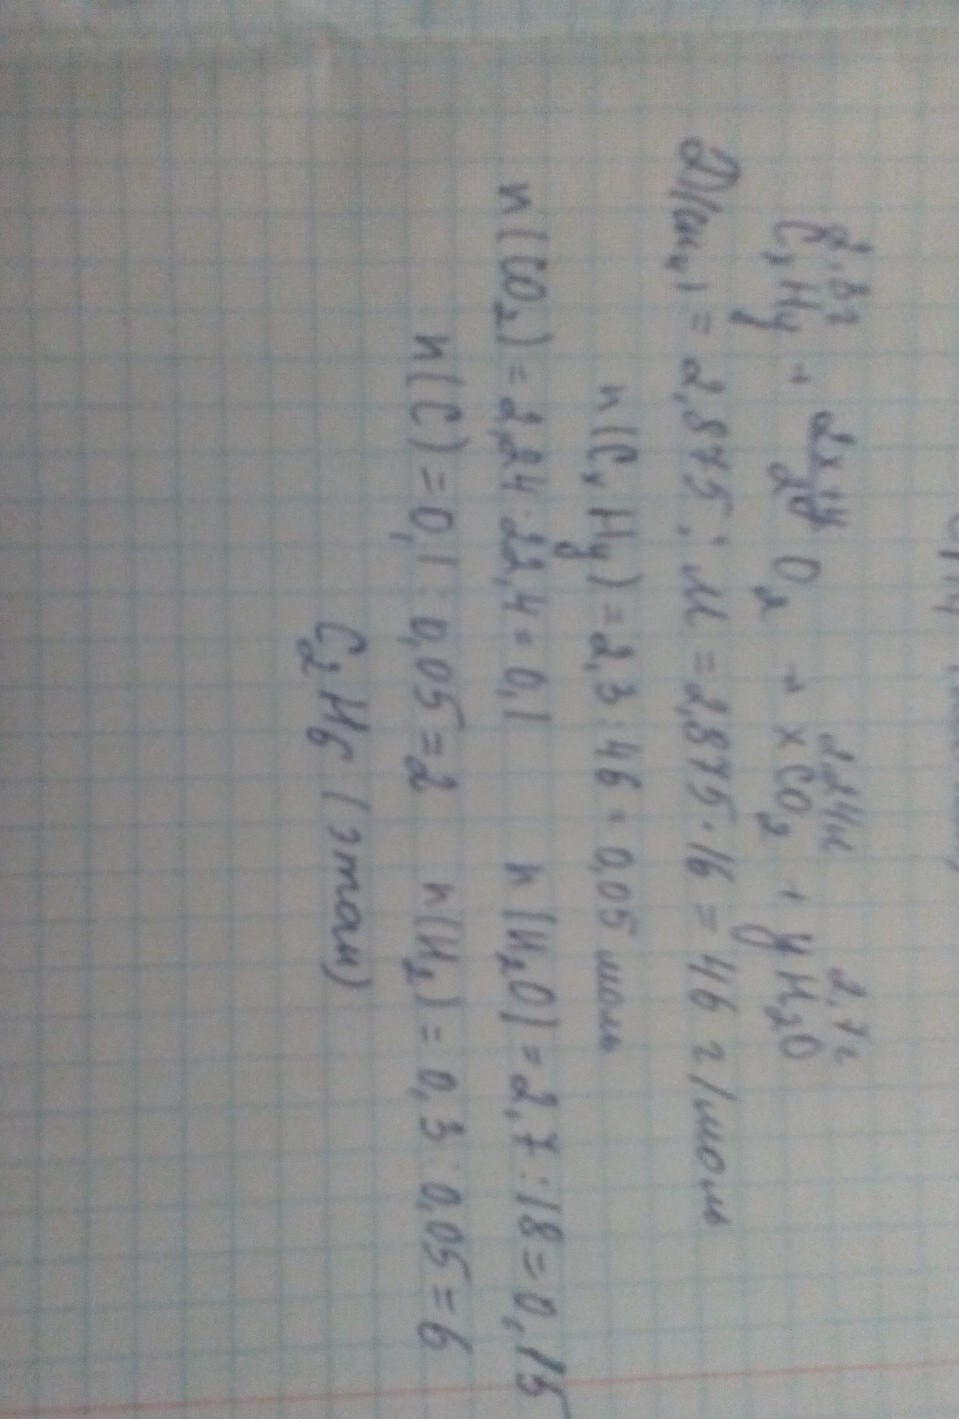 2,3г 2,24л 2,7г
CxHy + 2x+y/2 O2 → xCO2 + yH2O
D(CH4) = 2,875 ; M = 2,875·16 = 46 г/моль
n(CxHy) = 2,3 : 46 = 0,05 моль
n(CO2) = 2,24 · 22,4 = 0,1 n(H2O) = 2,7 : 18 = 0,15
n(C) = 0,1 : 0,05 = 2 n(H2) = 0,3 : 0,05 = 6
C2H6 (этан)